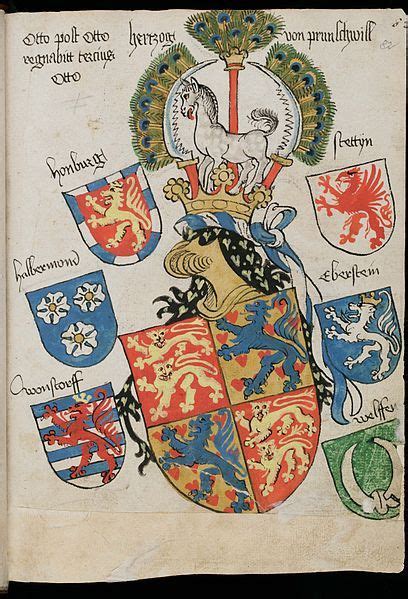 Otto post Otto
regnabit tercius
Otto
hertzog von prunschwill
82
honburgk
stettyn
halbermond
Eberstein
welffen